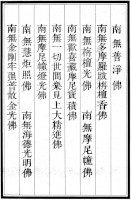 南無普淨佛
南無多摩羅跋栴檀香佛
南無栴檀光佛 南無摩尼幢佛
南無歡喜藏摩尼寶積佛
南無一切世間樂見上大精進佛
南無摩尼幢燈光佛
南無慧炬照佛 南無海德光明佛
南無金剛牢強普散金光佛